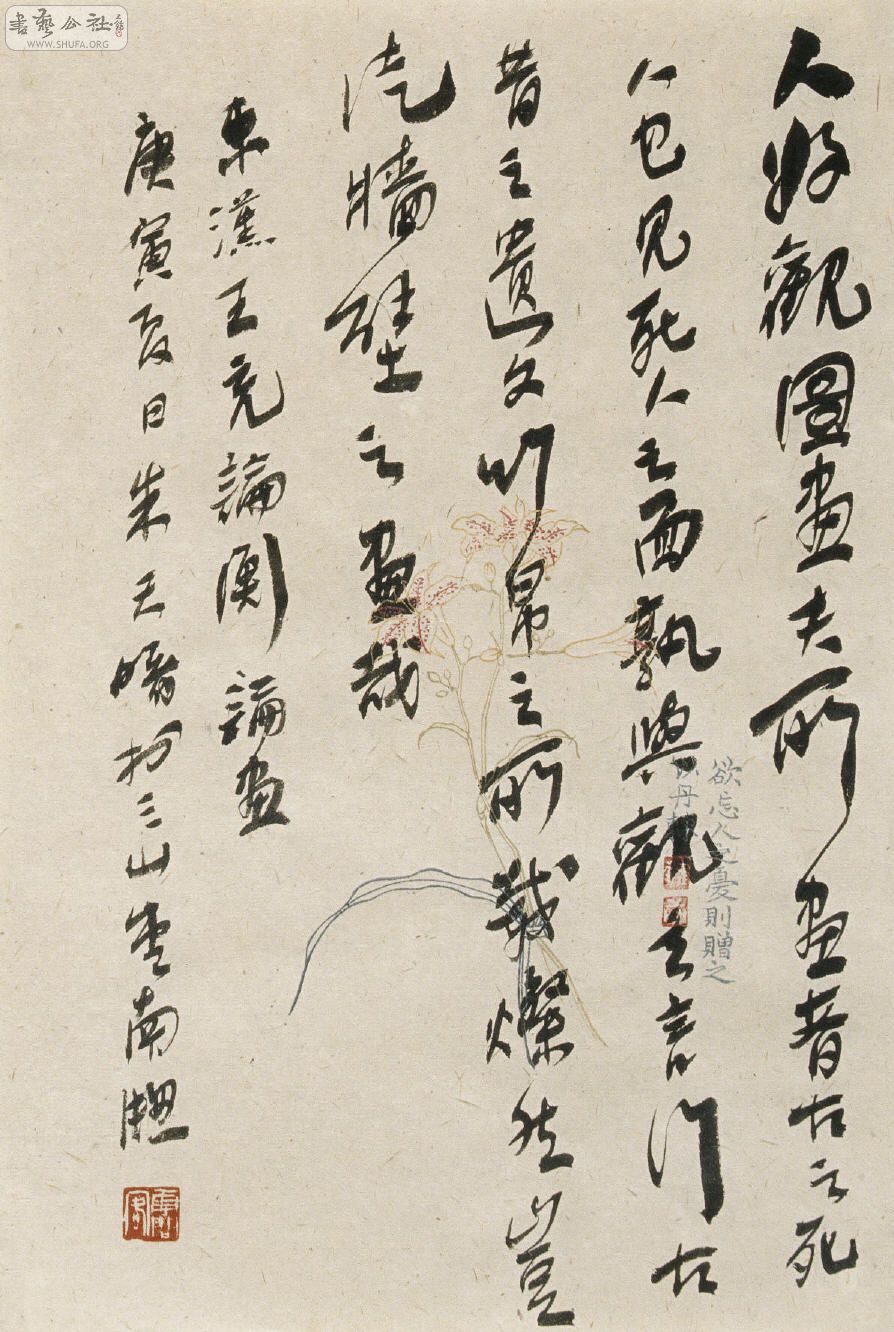 書藝公社
WWW.SHUFA.ORG
人好觀圖畫夫所畫者古之死
人也見死人之面孰與觀之言行古
昔之遺文竹帛之所載燦然豈
徒墻壁之畫哉
東漢王充論衡論畫
庚寅夏日朱天曙於三山南牖
欲忘人之憂則贈之
以丹棘